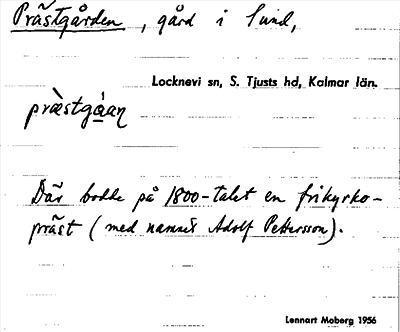 Prästgården, gård i Sund,
Locknevi sn, S. Tjusts hd, Kalmar län.
præ̀stgå̀aɳ
Där bodde på 1800-talet en frikyrko-
präst (med namnet Adolf Pettersson).
Lennart Moberg 1956